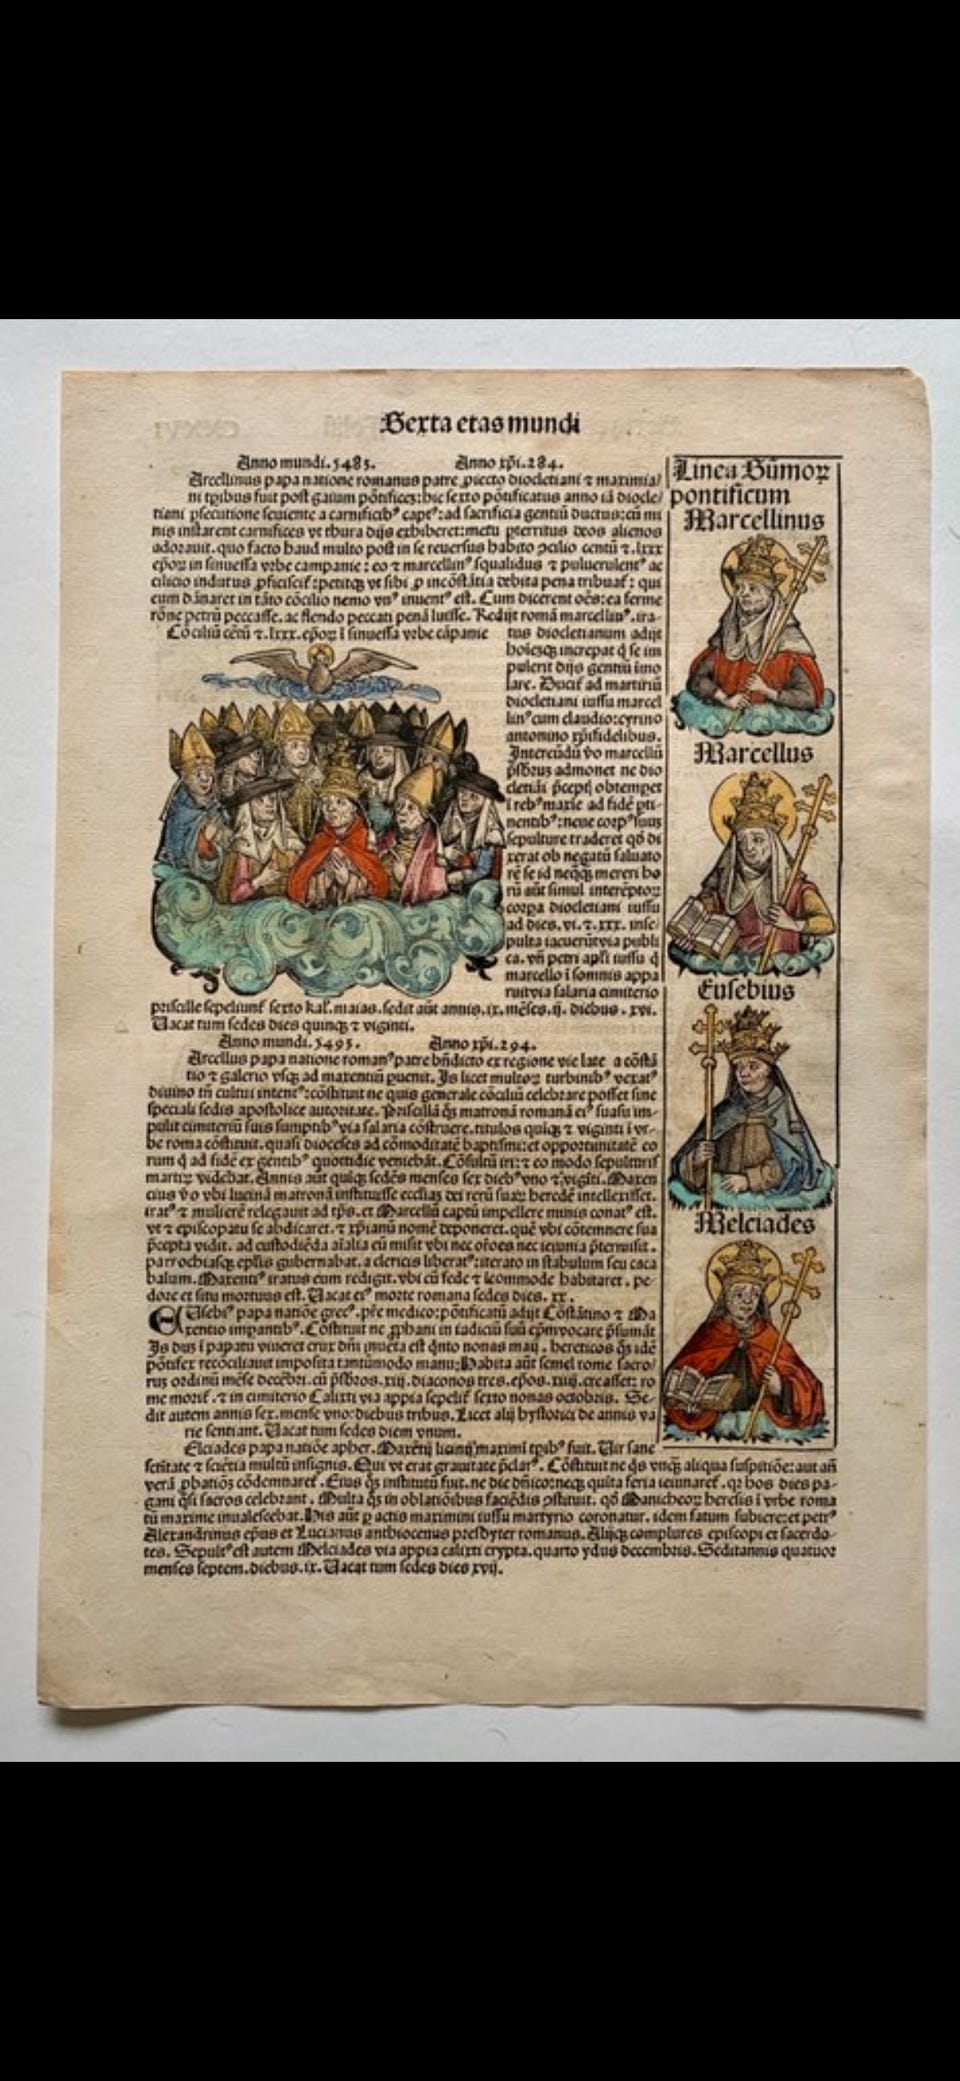 Sexta etas mundi
Anno mundi. 5485. Anno xp̄i. 284.
Arcellinus papa natione romanus patre ꝓiecto diocletiani ⁊ maximia/
ni tp̄ibus fuit post gaium pōtifices: hic sexto pōtificatus anno iā diocle/
tiani ꝑsecutione seuiente a carnificibꝰ captꝰ: ad sacrificia gentiū ductus: cū mi
nis instarent carnifices vt thura dijs exhiberet: metu ꝑterritus deos alienos
adorauit. quo facto haud multo post in se reuersus habito ꝯcilio centū ⁊. lxxx
ep̄oꝝ in sinuessa vrbe campanie: eo ⁊ marcellinꝰ squalidus ⁊ puluerulentꝰ ac
cilicio indutus ꝓficiscit᷑: petitqꝫ vt sibi ꝓ incōstātia debita pena tribuat᷑: qui
eum dānaret in tāto cōcilio nemo vnꝰ inuentꝰ est. Cum dicerent oēs: ea ferme
rōne petrū peccasse. ac flendo peccati penā luisse. Redijt romā marcellinꝰ. ira-
Cōciliū cētū ⁊. lxxx. ep̄oꝝ ī sinuessa vrbe cāpanie
tus diocletianum adijt
hoiesqꝫ increpat q̄ se im
pulerit dijs gentiū imo
lare. Ducit᷑ ad martiriū
diocletiani iussu marcel
linꝰ cum claudio: cyrino
antonino xp̄ifidelibus.
Intereūdū v̄o marcellū
p̄sb̄rum admonet ne dio
cletiāi p̄ceptꝭ obtemꝑet
ī rebꝰ maxīe ad fidē ꝑti-
nentibꝰ: neue corpꝰ suuꝫ
sepulture traderet qd̄ di
xerat ob negatū saluato
rē se id neqꝫ mereri ho
rū aūt simul interēptoꝝ
corꝑa diocletiani iussu
ad dies. vi. ⁊. xxx. inse/
pulta iacuerūt via publi
ca. vn̄ petri apl̄i iussu q̄
marcello ī somnis appa
ruit via salaria cimiterio
priscille sepeliunt᷑ sexto kal᷑. maias. sedit aūt annis. ix. mēses. ij. diebus. xvi.
Uacat tum sedes dies quinqꝫ ⁊ viginti.
Anno mundi. 5495. Anno xp̄i. 294.
Arcellus papa natione romanꝰ patre bn̄dicto ex regione vie late a cōstā
tio ⁊ galerio vsqꝫ ad maxentiū ꝑuenit. Is licet multoꝝ turbinibꝰ vexatꝰ
diuino tn̄ cultui intentꝰ: cōstituit ne quis generale cōciliū celebrare posset sine
speciali sedis apostolice autoritate. Priscillā qꝫ matronā romanā eiꝰ suasu im-
pulit cimiteriū suis sumptibꝰ via salaria cōstruere. titulos quīqꝫ ⁊ viginti ī vr-
be roma cōstituit. quasi dioceses ad cōmoditatē baptismi: et opportunitatē eo
rum q̄ ad fidē ex gentibꝰ quottidie veniebāt. Cōsultū iri: ⁊ eo modo sepulturis
martiꝝ videbat. Annis aūt quīqꝫ sedēs menses sex diebꝰ vno ⁊ vigīti. Maxen
cius v̄o vbi lucinā matronā instituisse eccliaꝫ dei rerū suaꝝ heredē intellexisset.
iratꝰ ⁊ mulierē relegauit ad tp̄s. et Marcellū captū impellere minis conatꝰ est.
vt ⁊ episcopatu se abdicaret. ⁊ xp̄ianū nomē deponeret. quē vbi cōtemnere sua
p̄cepta vidit. ad custodiēda aīalia eū misit vbi nec or̄oes nec ieiunia p̄termisit.
parrochiasqꝫ ep̄lis gubernabat. a clericis liberatꝰ: iterato in stabulum seu caca
balum. Maxentiꝰ iratus eum redigit. vbi cū sede ⁊ īcommode habitaret. pe-
dore et situ mortuus est. Uacat eiꝰ morte romana sedes dies. xx.
EUsebiꝰ papa natiōe grecꝰ. pr̄e medico: pōtificatū adijt Cōstātino ⁊ Ma
xentio imꝑantibꝰ. Cōstituit ne ꝓphani in iudiciū suū ep̄m vocare p̄sumāt
Is dus ī papatu viueret crux dn̄i inuēta est q̄nto nonas maij. hereticos qꝫ idē
pōtifex recōciliauit imposita tantūmodo manu: Habita aūt semel rome sacro/
rum ordinū mēse decēbri. cū p̄sb̄ros. xiij. diaconos tres. ep̄os. xiiij. creasset: ro
me morit᷑. ⁊ in cimiterio Calixti via appia sepelit᷑ sexto nonas octobris. Se-
dit autem annis sex. mense vno: diebus tribus. Licet alij hystorici de annis va
rie sentiant. Uacat tum sedes diem vnum.
Elciades papa natiōe apher. Maxētij licinij maximī tp̄ibꝰ fuit. Uir sane
sctītate ⁊ sciētia multū insignis. Qui vt erat grauitate p̄clarꝰ. Cōstituit ne qs vnqꝫ aliqua suspitiōe: aut añ
verā ꝓbatiōꝫ cōdemnaret᷑. Eius qꝫ institutū fuit. ne die dn̄ico: neqꝫ quīta feria ieiunaret᷑. qꝛ hos dies pa-
gani q̄si sacros celebrant. Multa qꝫ in oblatiōibus faciēdis ꝯstituit. qd̄ Manicheoꝝ heresis ī vrbe roma
tū maxime inualescebat. His aūt ꝑactis maximini iussu martyrio coronatur. idem fatum subiere: et petrꝰ
Alexandrinus ep̄us et Lucianus anthiocenus presbyter romanus. Alijqꝫ complures episcopi et sacerdo-
tes. Sepultꝰ est autem Melciades via appia calixti crypta. quarto ydus decembris. Sedit annis quatuor
menses septem. diebus. ix. Uacat tum sedes dies xvij.
Linea Sūmoꝝ
pontificum
Marcellinus
Marcellus
Eusebius
Melciades